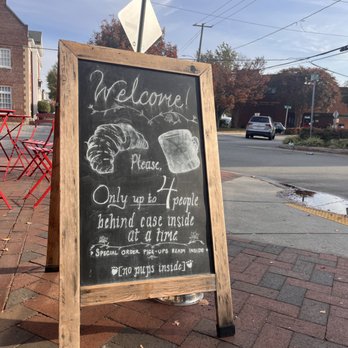 Welcome!
Please,
Only up to 4 people
behind case inside
at a time
Special order pick-ups ready inside
[no pups inside]